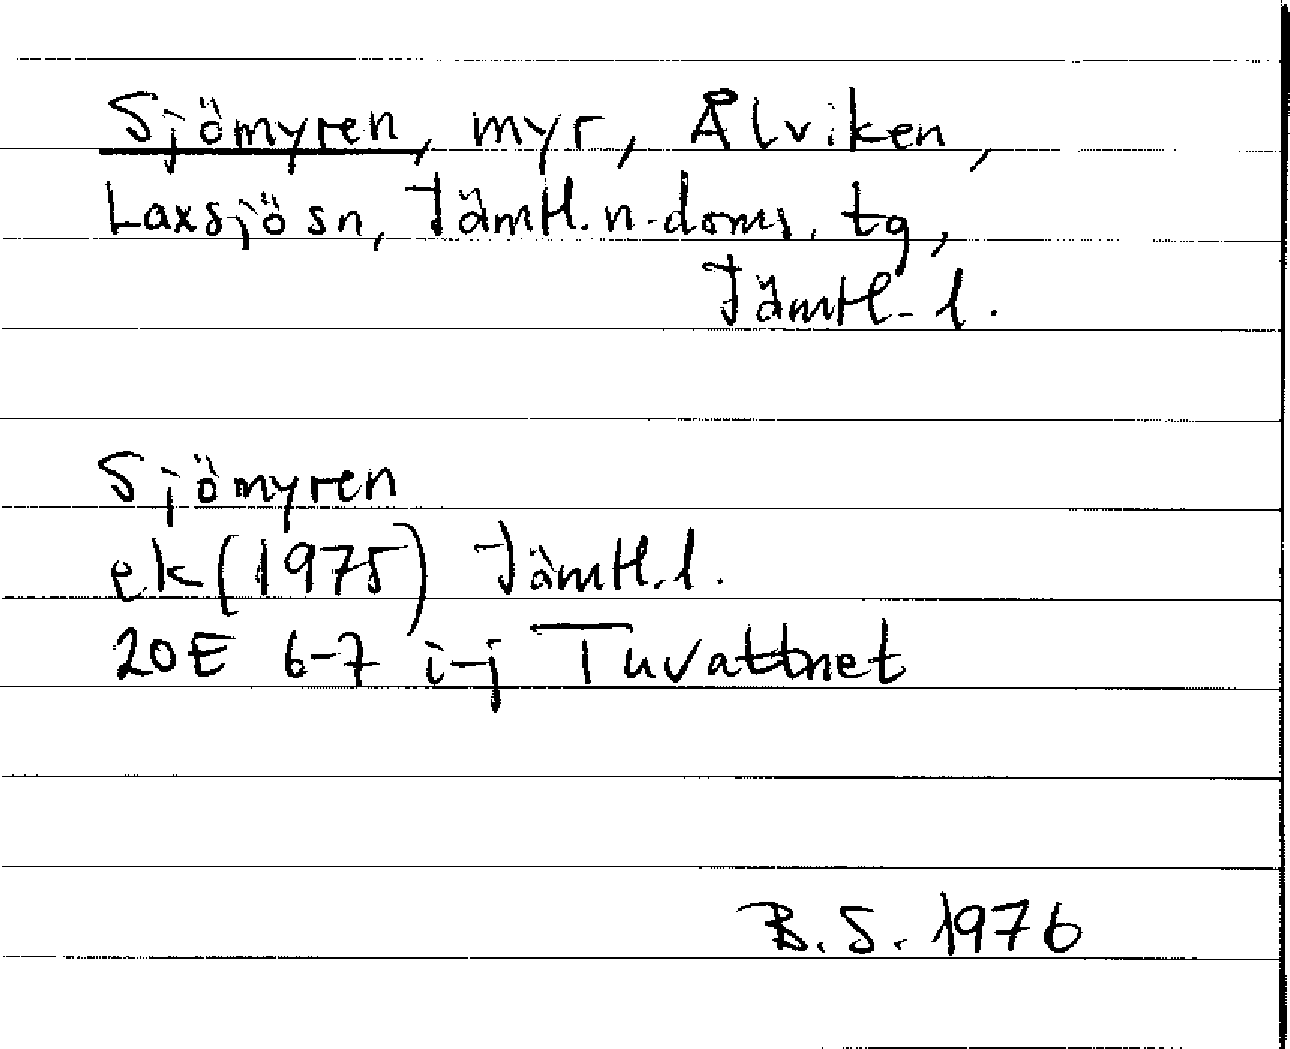 Sjömyren, myr, Ålviken,
Laxsjö sn, Jämtl. n. doms. tg,
Jämtl. l.
Sjömyren
ek (1975) Jämtl. l.
20E 6-7 i-j Tuvattnet
B. S. 1976